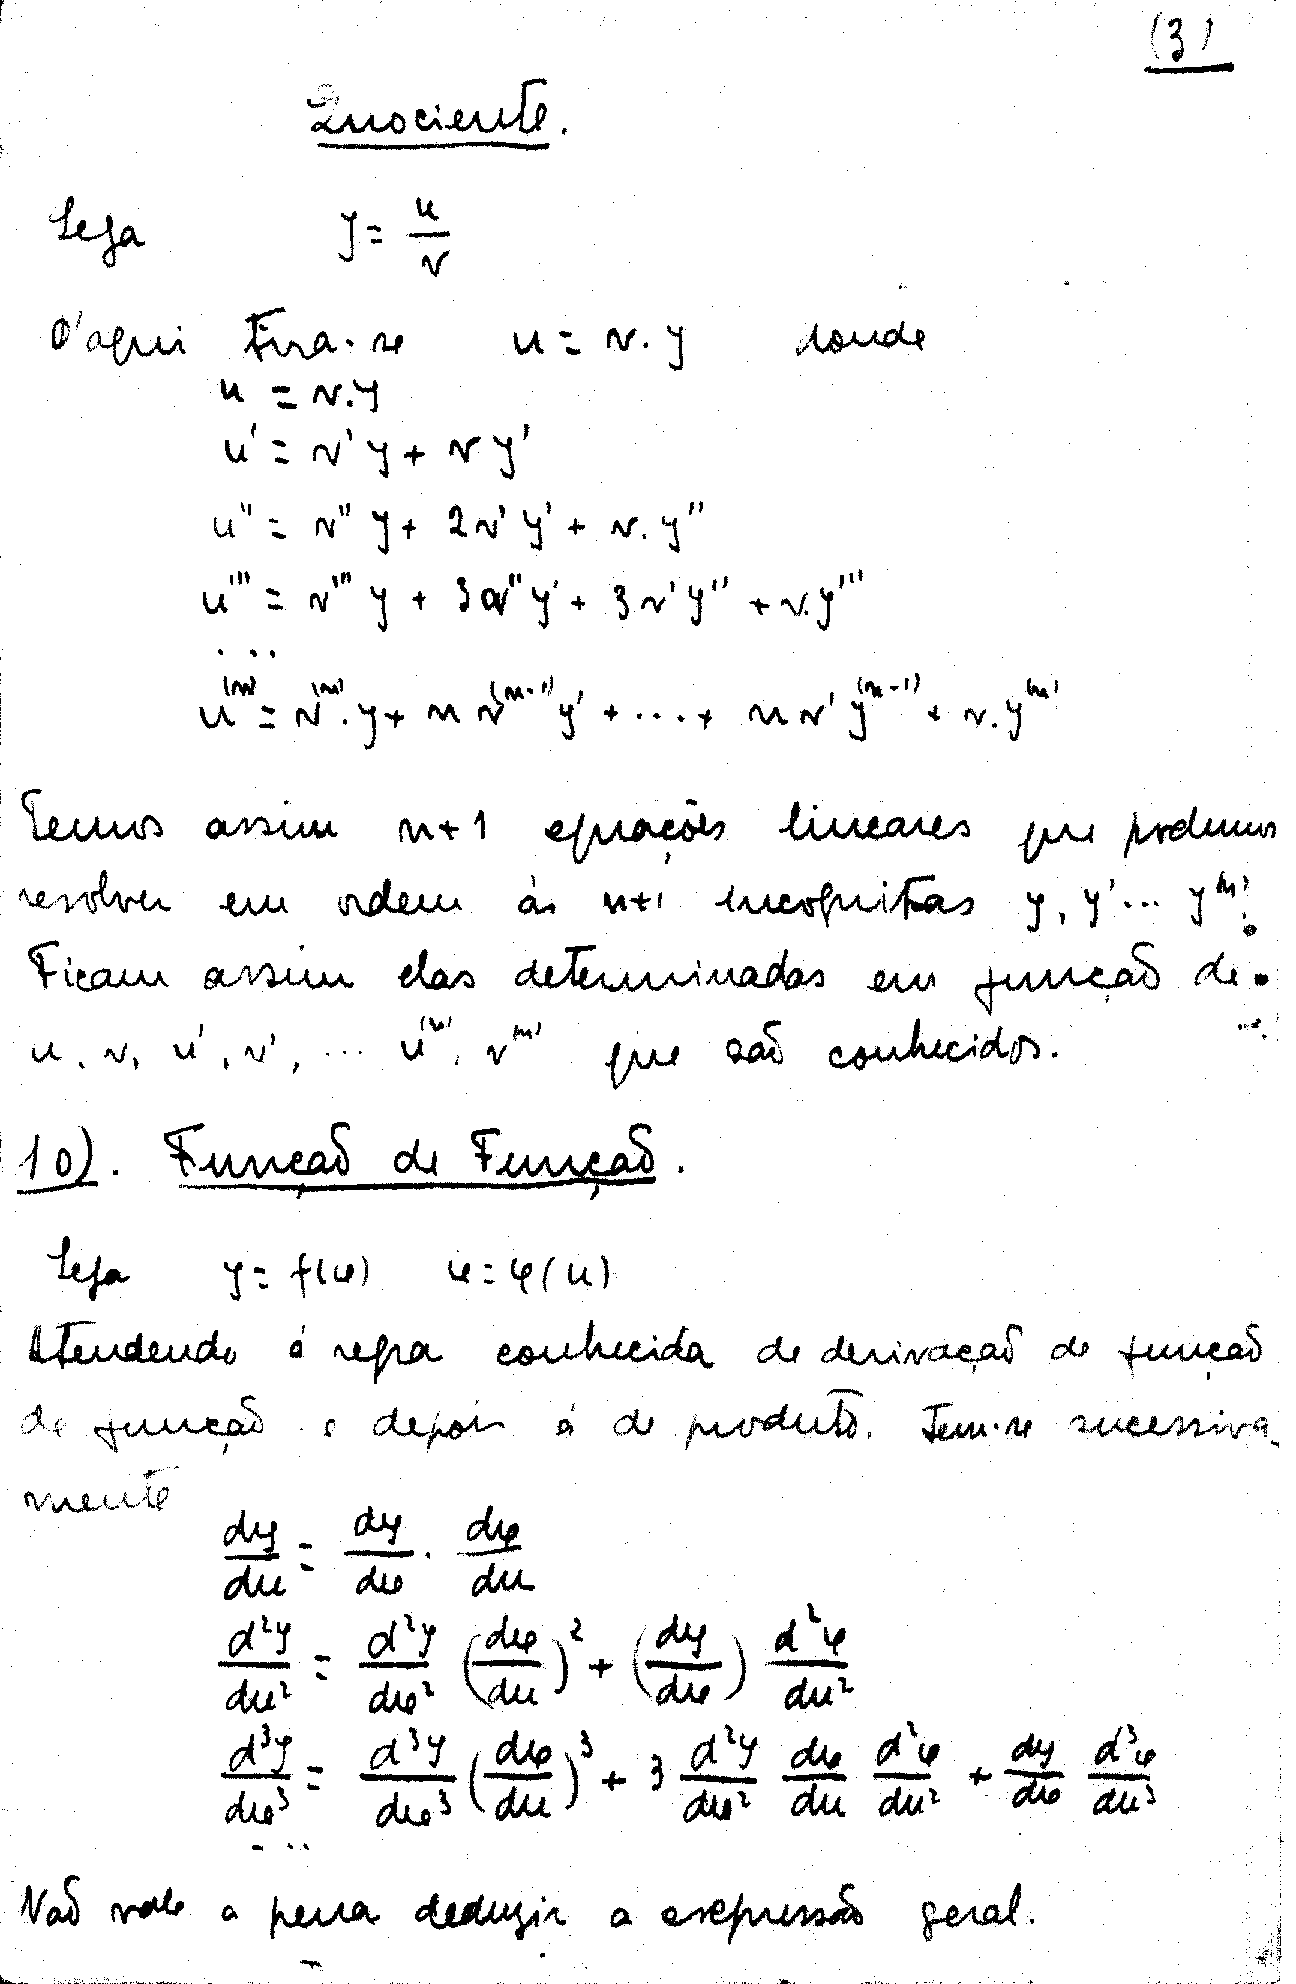 (3)
Quociente.
Seja y = u/v
D'aqui tira-se u = v.y donde
u = v.y
u' = v'y + v y'
u'' = v'' y + 2v' y' + v. y''
u''' = v''' y + 3v'' y' + 3 v' y'' + v. y'''
...
u⁽ⁿ⁾ = v⁽ⁿ⁾. y + n v⁽ⁿ⁻¹⁾ y' + .... + n v' y⁽ⁿ⁻¹⁾ + v. y⁽ⁿ⁾
Temos assim n+1 equações lineares que podemos
resolver em ordem ás n+1 incognitas y, y' ... y⁽ⁿ⁾.
Ficam assim elas determinadas em função de
u, v, u', v', ... u⁽ⁿ⁾, v⁽ⁿ⁾ que são conhecidos.
10). Função de Função.
Seja y = f(φ) φ = φ(u)
Atendendo á regra conhecida de derivação de função
de função e depois á de produto. Tem-se sucessiva-
mente
dy/du = dy/dφ . dφ/du
d²y/du² = d²y/dφ² (dφ/du)² + (dy/dφ) d²φ/du²
d³y/dφ³ = d³y/dφ³ (dφ/du)³ + 3 d²y/dφ² dφ/du d²φ/du² + dy/dφ d³φ/du³
...
Não vale a pena deduzir a expressão geral.